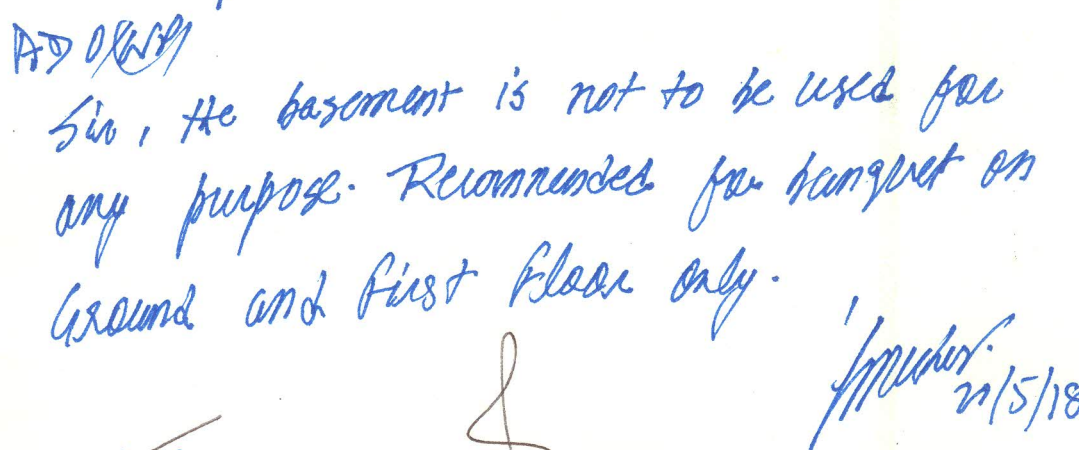 ADO(WP)
Sir, the basement is not to be used for
any purpose. Recommended for banquet on
Ground and First Floor only.
21/5/18